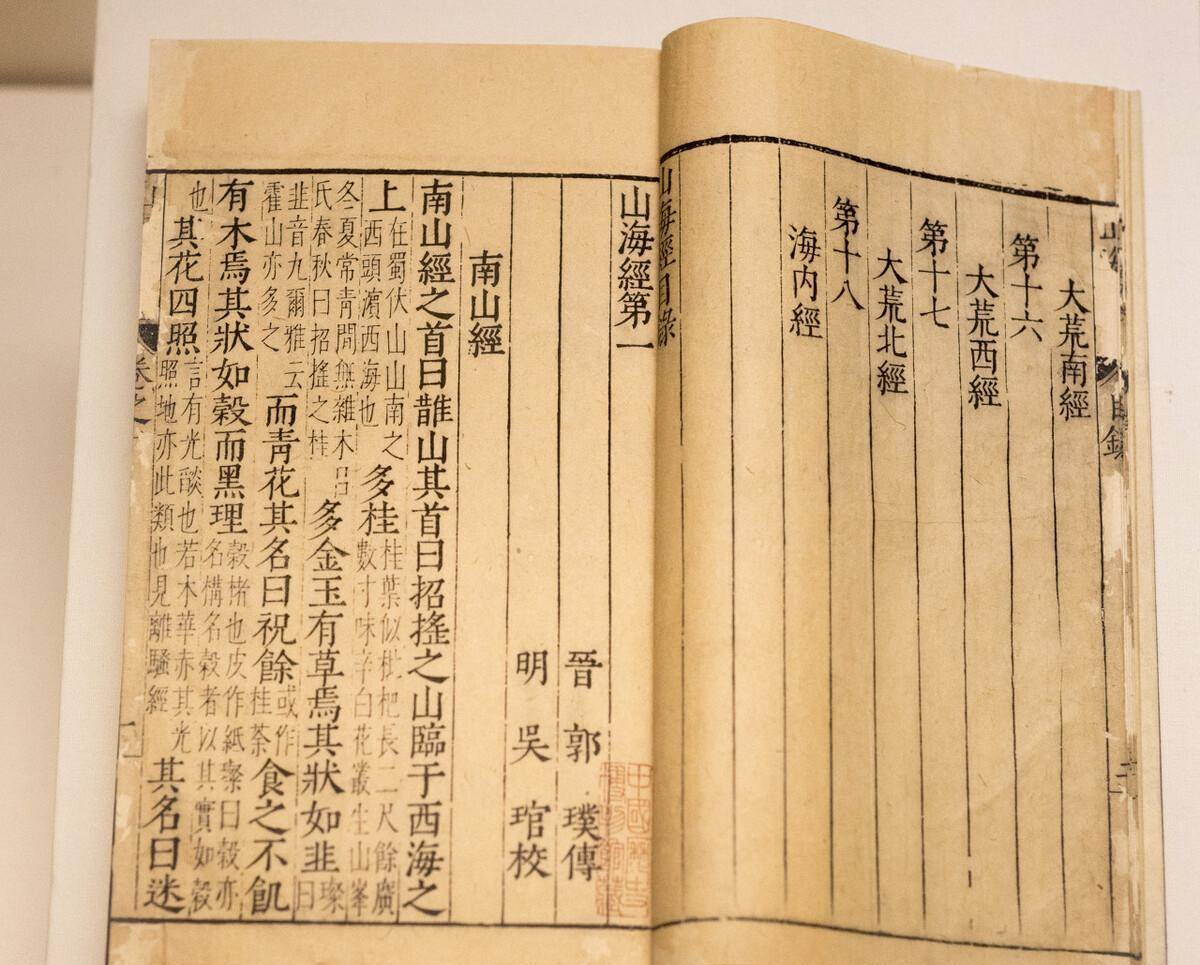 大荒南經
第十六
大荒西經
第十七
大荒北經
第十八
海內經
山海經目錄
山海經第一
晉 郭 璞傳
明 吳 琯校
南山經
南山經之首曰䧿山其首曰招搖之山臨于西海之
上在蜀伏山山南之西頭濱西海也多桂桂葉似枇杷長二尺餘廣數寸味辛白花叢生山峯
冬夏常青間無雜木呂氏春秋曰招搖之桂多金玉有草焉其狀如韭璨曰
韭音九爾雅云霍山亦多之而青花其名曰祝餘或作桂荼食之不飢
有木焉其狀如榖而黑理榖楮也皮作紙璨曰榖亦名構名榖者以其實如榖
也其花四照言有光燄也若木華赤其光照地亦此類也見離騷經其名曰迷